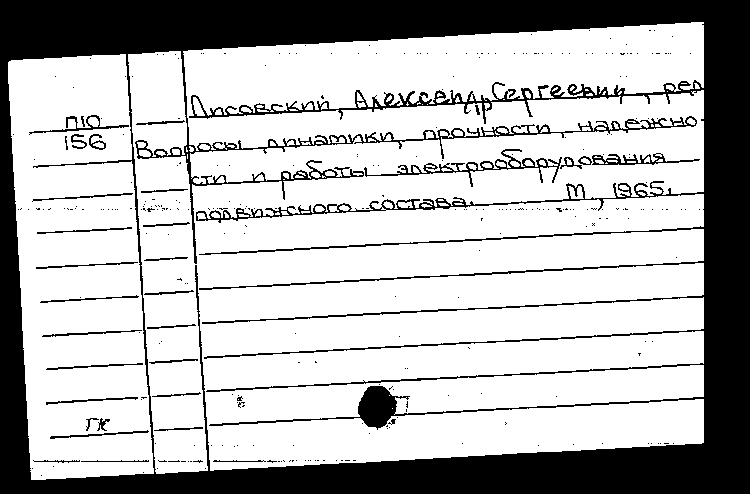 Лисовский, Александр Сергеевич, ред
П10
156
Вопросы динамики, прочности, надежно-
сти и работы электрооборудования
подвижного состава. М, 1965.
ГК